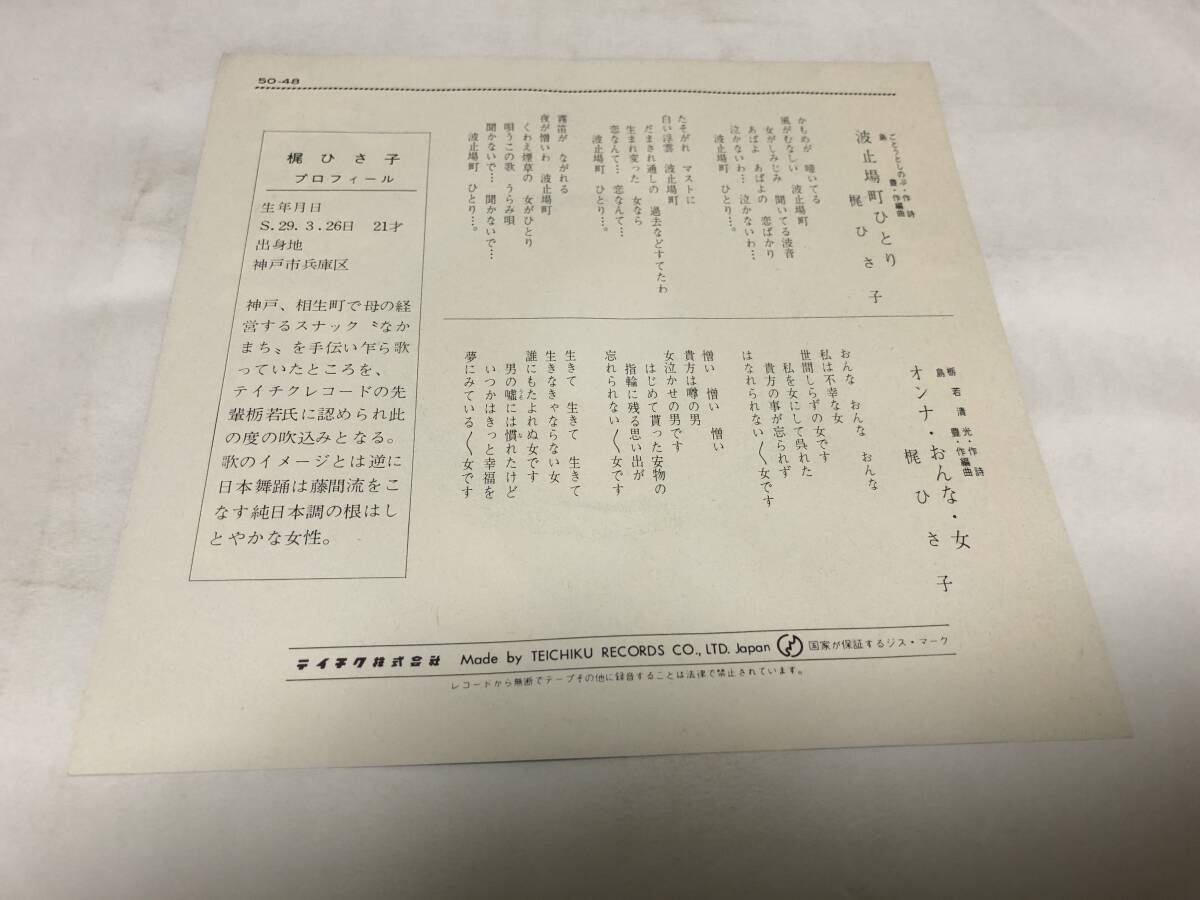 50-48
ごとうとしのぶ・作詩
島 豊・作編曲
波止場町ひとり
梶 ひさ子
かもめが 啼いてる
風がむなしい 波止場町
女がしみじみ 聞いてる波音
あばよ あばよの 恋ばかり
泣かないわ… 泣かないわ…
波止場町 ひとり…。
たそがれ マストに
白い浮雲 波止場町
だまされ通しの 過去などすてたわ
生まれ変った 女なら
恋なんて… 恋なんて…
波止場町 ひとり…。
霧笛が ながれる
夜が憎いわ 波止場町
くわえ煙草の 女がひとり
唄うこの歌 うらみ唄
聞かないで… 聞かないで…
波止場町 ひとり…。
栃若清光・作詩
島 豊・作編曲
オンナ・おんな・女
梶 ひさ子
おんな おんな おんな
私は不幸な女
世間しらずの女です
私を女にして呉れた
貴方の事が忘られず
はなれられない〱女です
憎い 憎い 憎い
貴方は噂の男
女泣かせの男です
はじめて貰った安物の
指輪に残る思い出が
忘れられない〱女です
生きて 生きて 生きて
生きなきゃならない女
誰にもたよれぬ女です
男の嘘には慣れたけど
いつかはきっと幸福を
夢にみている〱女です
梶ひさ子
プロフィール
生年月日
S.29.3.26日 21才
出身地
神戸市兵庫区
神戸、相生町で母の経
営するスナック〝なか
まち〟を手伝い乍ら歌
っていたところを、
テイチクレコードの先
輩栃若氏に認められ此
の度の吹込みとなる。
歌のイメージとは逆に
日本舞踊は藤間流をこ
なす純日本調の根はし
とやかな女性。
テイチク株式会社 Made by TEICHIKU RECORDS CO., LTD. Japan 国家が保証するジス・マーク
レコードから無断でテープその他に録音することは法律で禁止されています。